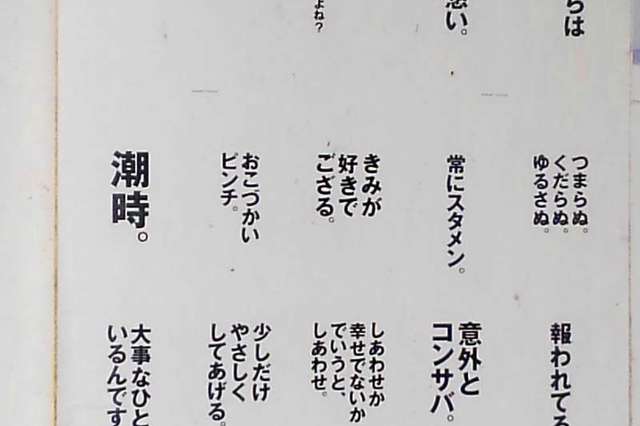 らは
思い。
よね？
つまらぬ。
くだらぬ。
ゆるさぬ。
常にスタメン。
きみが
好きで
ござる。
おこづかい
ピンチ。
潮時。
報われてる
意外と
コンサバ。
しあわせか
幸せでないか
でいうと、
しあわせ。
少しだけ
やさしく
してあげる。
大事なひと
いるんです